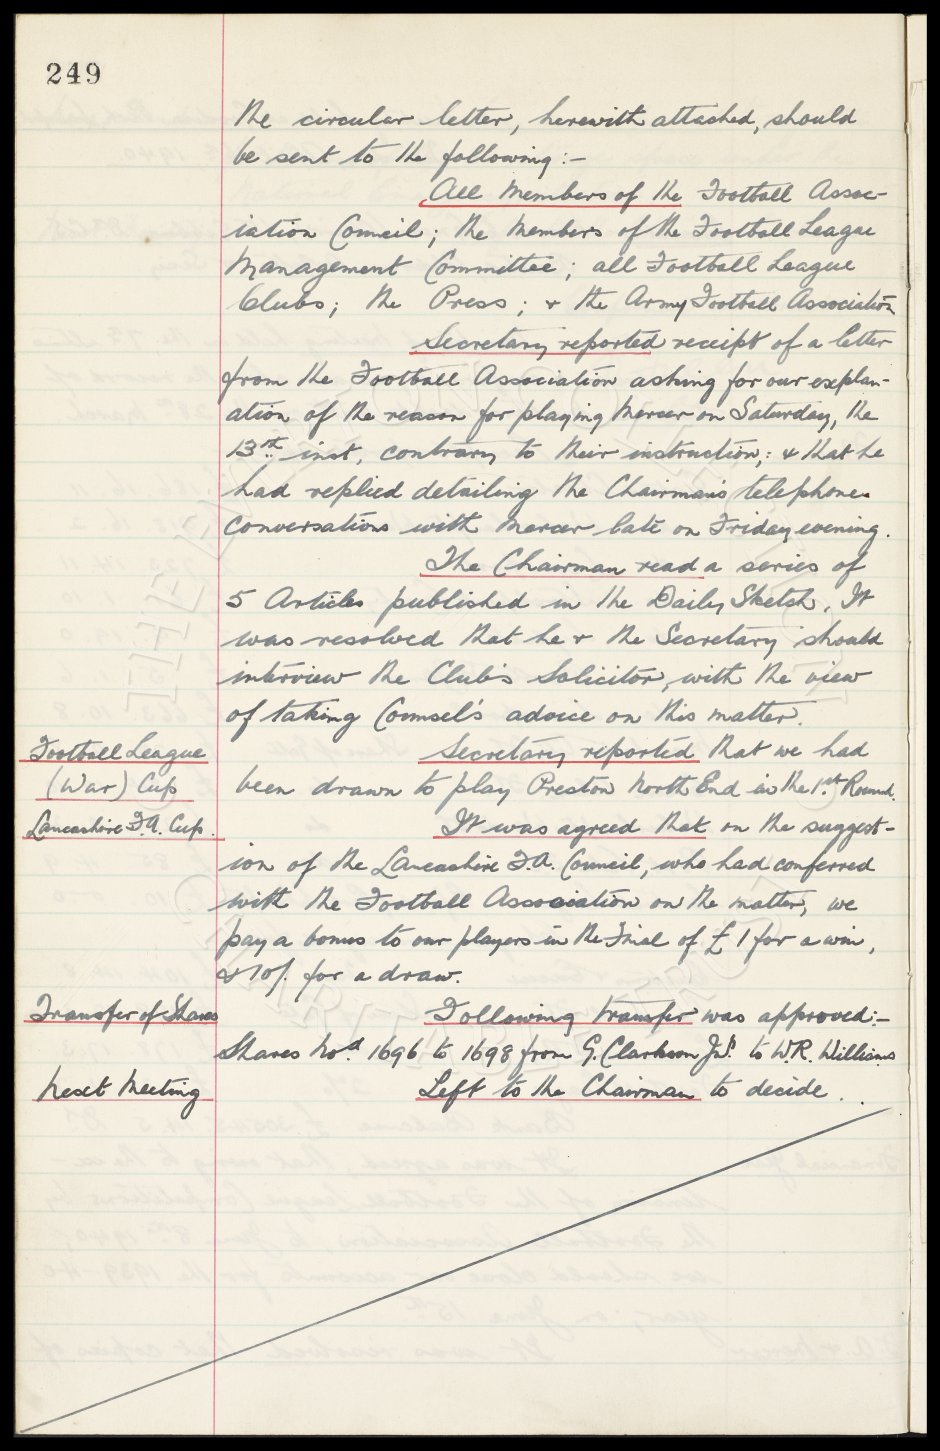 249
the circular letter, herewith attached, should
be sent to the following :-
All Members of the Football Assoc-
iation Council; the Members of the Football League
Management Committee; all Football League
Clubs; the Press; & the Army Football Association
Secretary reported receipt of a letter
from the Football Association asking for our explan-
ation of the reason for playing Mercer on Saturday, the
13th inst, contrary to their instruction; & that he
had replied detailing the Chairman's telephone
conversations with Mercer late on Friday evening.
The Chairman read a series of
5 Articles published in the Daily Sketch. It
was resolved that he & the Secretary should
interview the Club's Solicitor, with the view
of taking Counsel's advice on this matter.
Football League Secretary reported that we had
(War) Cup been drawn to play Preston North End in the 1st Round.
Lancashire F.A. Cup. It was agreed that on the suggest-
ion of the Lancashire F.A. Council, who had conferred
with the Football Association on the matter, we
pay a bonus to our players in the Final of £1 for a win,
& 10/. for a draw.
Transfer of Shares Following transfer was approved:-
Shares Nos. 1696 to 1698 from G. Clarkson Jnr. to W.R. Williams
Next Meeting Left to the Chairman to decide.